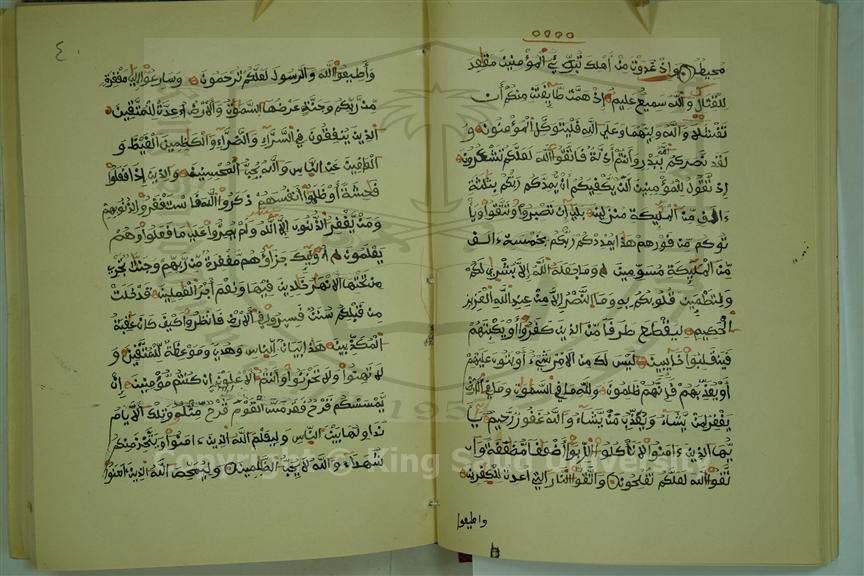 محيط وإذ غدوت من أهلك تبوئ المؤمنين مقاعد
للقتال والله سميع عليم إذ همت طائفتان منكم أن
تفشلا والله وليهما وعلى الله فليتوكل المؤمنون و
لقد نصركم الله ببدر وأنتم أذلة فاتقوا الله لعلكم تشكرون
إذ تقول للمؤمنين ألن يكفيكم أن يمدكم ربكم بثلثة
ءالف من المليكة منزلين بلى إن تصبروا وتتقوا ويأ
توكم من فورهم هذا يمددكم ربكم بخمسة ءالف
من المليكة مسومين وما جعله الله إلا بشرى لكم
ولتطمئن قلوبكم به وما النصر إلا من عند الله العزيز
الحكيم ليقطع طرفا من الذين كفروا أو يكبتهم
فينقلبوا خائبين ليس لك من الأمر شيء أو يتوب عليهم
أو يعذبهم فإنهم ظلمون ولله ما في السموت وما في الأرض
يغفر لمن يشاء ويعذب من يشاء والله غفور رحيم يأ
يها الذين ءامنوا لا تأكلوا الربوا أضعفا مضعفة وا
تقوا الله لعلكم تفلحون واتقوا النار التي أعدت للكفرين
واطيعوا
٤
وأطيعوا الله والرسول لعلكم ترحمون وسارعوا إلى مغفرة
من ربكم وجنة عرضها السموت والأرض أعدت للمتقين
الذين ينفقون في السراء والضراء والكظمين الغيظ و
العافين عن الناس والله يحب المحسنين والذين إذا فعلوا
فحشة أو ظلموا أنفسهم ذكروا الله فاستغفروا لذنوبهم
ومن يغفر الذنوب إلا الله ولم يصروا على ما فعلوا وهم
يعلمون أوليك جزاؤهم مغفرة من ربهم وجنت تجري
من تحتها الأنهر خلدين فيها ونعم أجر العملين قد خلت
من قبلكم سنن فسيروا في الأرض فانظروا كيف كان عقبة
المكذبين هذا بيان للناس وهدى وموعظة للمتقين و
لا تهنوا ولا تحزنوا وأنتم الأعلون إن كنتم مؤمنين إن
يمسسكم قرح فقد مس القوم قرح مثله وتلك الأيام
نداولها بين الناس وليعلم الله الذين ءامنوا ويتخذ منكم
شهداء والله لا يحب الظلمين وليمحص الله الذين ءامنوا
Copyright © King Saud University
195